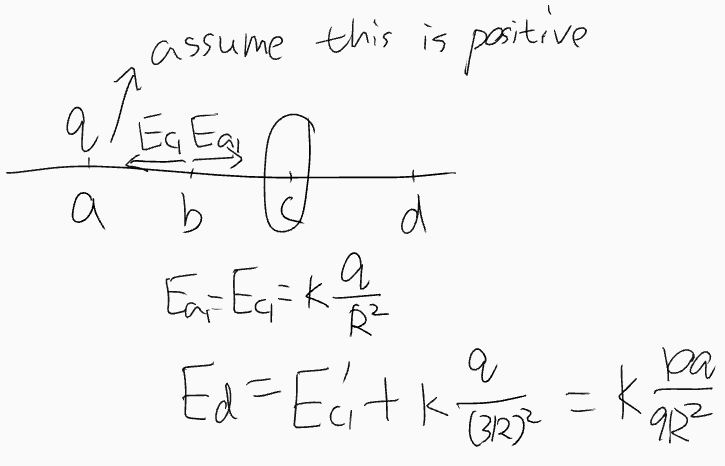 assume this is positive
q E_{c1} E_{a1}
a b c d
E_{a1} = E_{c1} = k \frac{q}{R^2}
E_d = E_{c1}' + k \frac{q}{(3R)^2} = k \frac{10q}{9R^2}